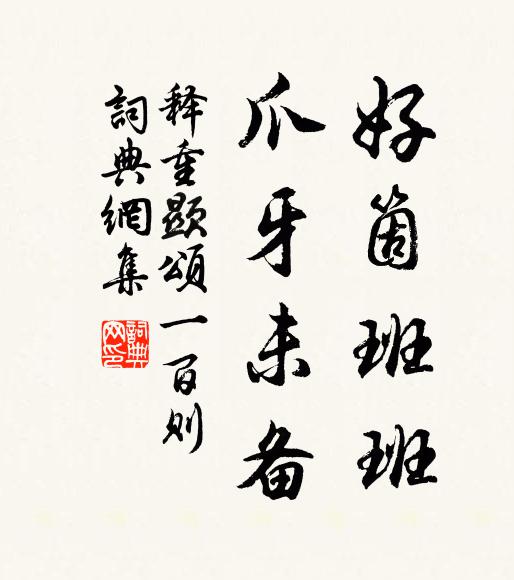 好箇班班
爪牙未备
释重顕颂一百则
詞典網集
詞典网印